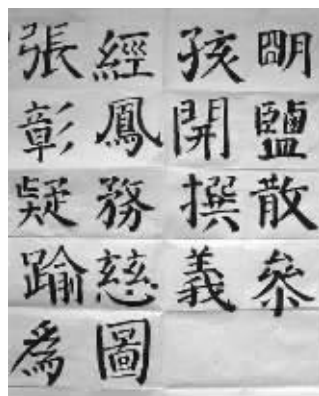 張經孩明
彰鳳開鹽
疑務撰散
踰慈義叅
為圖